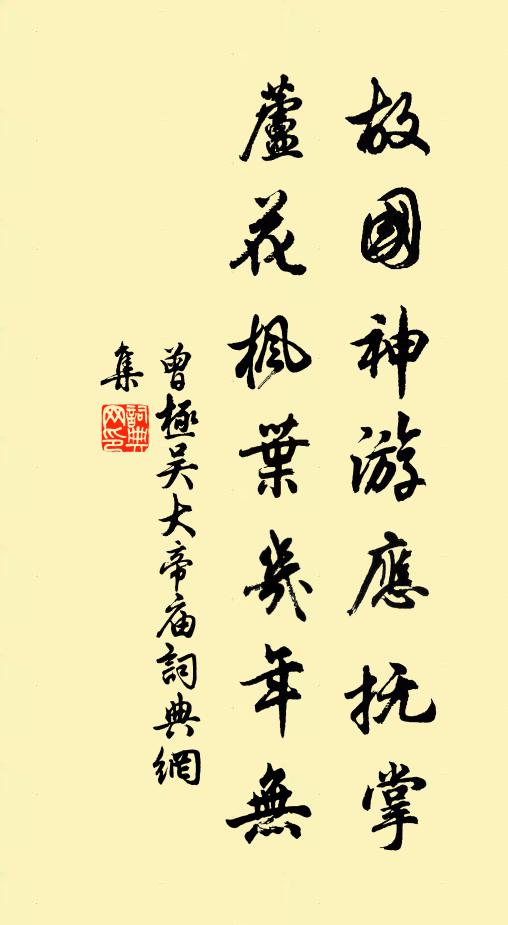 故國神游應抚掌
蘆花楓葉幾年無
曾極吴大帝庙詞典網
集
詞典网印